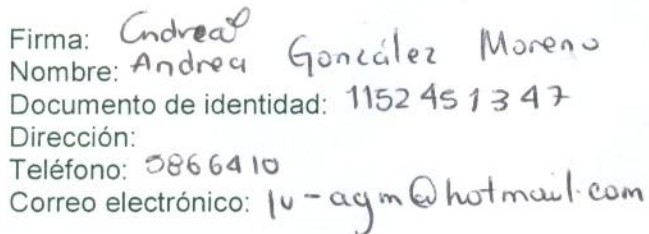 Firma: Andrea
Nombre: Andrea González Moreno
Documento de identidad: 1152451347
Dirección:
Teléfono: 5866410
Correo electrónico: lu-agm@hotmail.com